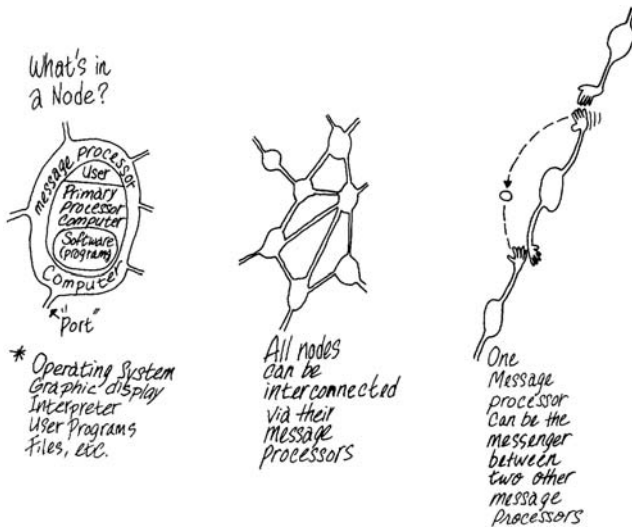 What's in
a Node?
message processor
User
Primary
Processor
Computer
Software
(programs)
Computer
"Port"
* Operating System
Graphic display
Interpreter
User Programs
Files, etc.
All nodes
can be
interconnected
via their
message
Processors
One
Message
processor
Can be the
messenger
between
two other
message
Processors